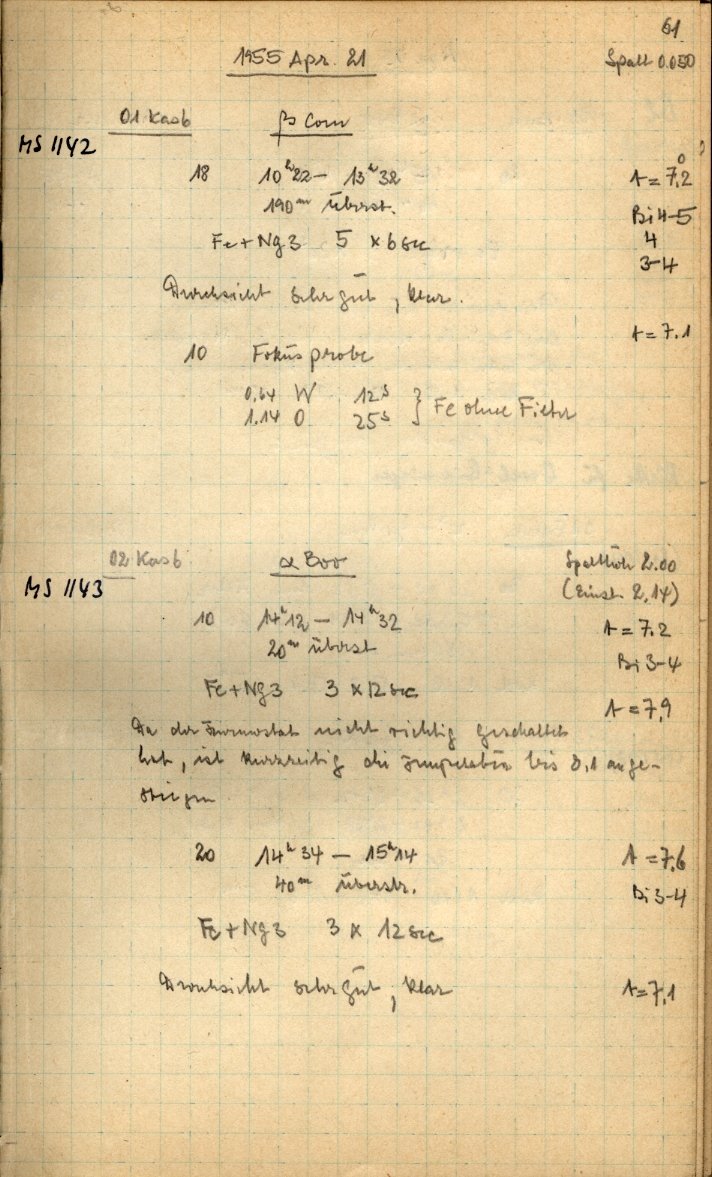 61
1955 Apr. 21
Spalt 0.050
01 Kas b β Com
MS 1142
18 10ʰ22 – 13ʰ32 A = 7,2⁰
190ᵐ überst. Bi 4-5
Fe + Ng 3 5 × 6 sec 4
3-4
Durchsicht sehr gut, klar.
A = 7.1
10 Fokusprobe
0,64 W 12ˢ
1.14 O 25ˢ } Fe ohne Filter
02 Kas b α Boo Spalthöh 2.00
MS 1143 (Einst. 2,14)
10 14ʰ12 – 14ʰ32 A = 7.2
20ᵐ überst Bi 3-4
Fe + Ng 3 3 × 12 sec
A = 7,9
Da der Thermostat nicht richtig geschaltet
hat, ist kurzzeitig die Temperatur bis 8,1 ange-
stiegen
20 14ʰ34 – 15ʰ14 A = 7,6
40ᵐ überstr. Bi 3-4
Fe + Ng 3 3 × 12 sec
Durchsicht sehr gut, klar A = 7,1